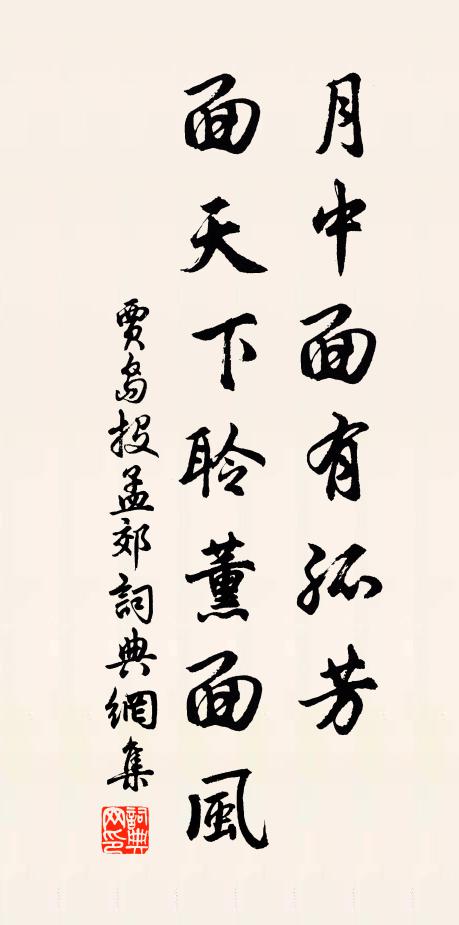 月中面有孤芳
面天下聆薰面風
賈島投孟郊詞典網集
詞典
网印